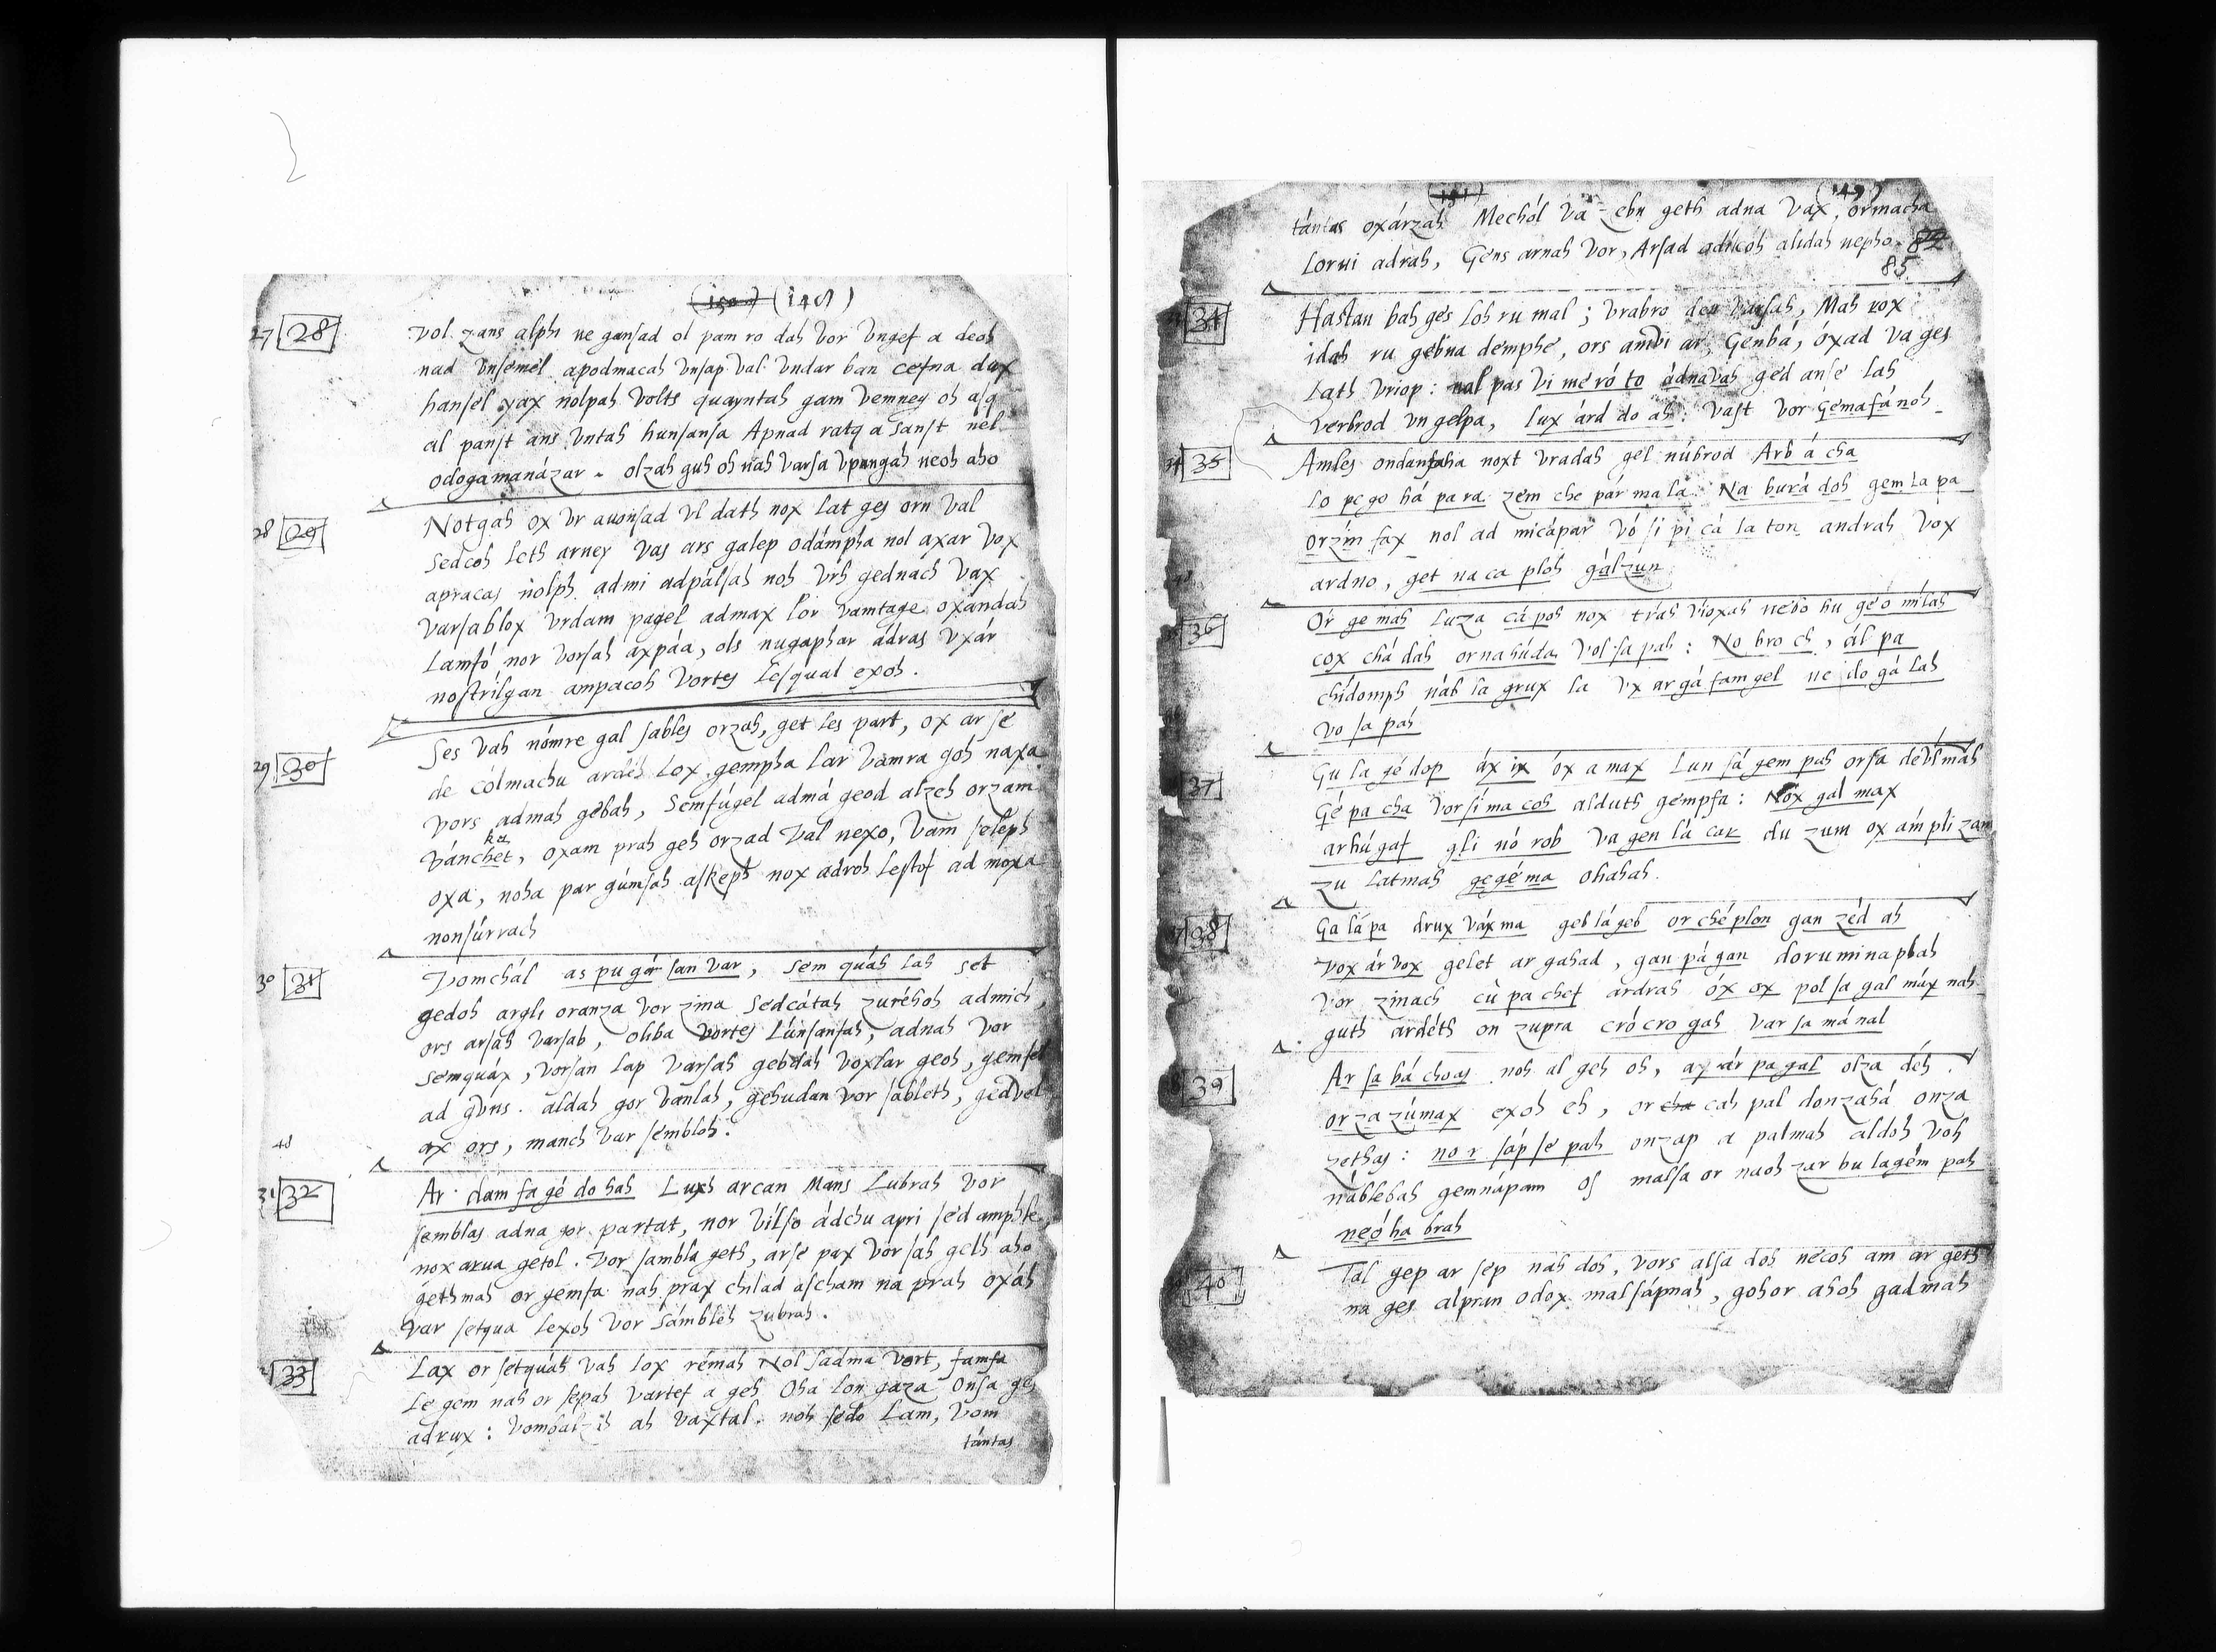 (150) (148)
27 28 vol. zans alphi ne gansad ol pam ro dah vor vngef a deoh
nad vnsemel apodmacah vnsap val vndar ban cefna dux
hansel yax nolpah volts quayntah gam vemney oh asq
al panst ans vntah hunsansa Apnad ratq a sanst nel
odogamanázar - olzah guh oh nah varsa vpangah neoh aho
28 29 Notgah ox vr auonsad vl dath nox lat ges orn val
sedcoh leth arney vas ars galep odámpha nol axar vox
apracas nolph. admi adpálsah noh vrh gednach vax
varsablox vrdam pagel admax lor vamtage oxandah
lamfó nor vorsah axpáa, ols nugaphar ádras vxár
nostrilgan ampacoh vortes lesqual exoh.
29 30 Ses vah nómre gal sables orzah, get les part, ox ar se
de cólmachu ardéh lox gempha lar vamra goh naxa
vors admah gebah, semfúgel admá geod alzeh orzam
ka
vánchet, oxam prah geh orzad val nexo, vam seleph
oxa, noha par gúmsah askeph nox adroh lestof ad moxa
nonsúrrach
30 31 Vomchál as pu gár san var, sem quáh lah set
gedoh argli oranza vor zima sedcátah zuréhoh admich,
ors arsah varsab, oliba vortes lúnsansah, adnah vor
semquáx, vorsan lap varsah gebdah voxlar geoh, gemsel
ad gvns. aldah gor vanlah, gehudan vor sableth, gedvel
ax ors, manch var sembloh.
31 32 Ar. dam fa gé do hah Luxh arcan Mans Lubrah vor
semblas adna gor partat, nor vilso ádchu apri sed amphle,
nox arua getol. vor sambla geth, arse pax vor sah gelh aho
gethmah or gemfa nah prax chilad ascham na prah oxáh
var setqua lexoh vor sámbleh zubrah.
33 Lax or setquáh vah lox rémah Nol sadma vort, famfa
le gem nah or sepah vartef a geh Oha lon gaza Onsa ges
adrux: vombal-ih ah vaxtal. noh sedo lam, vom
tántas
(151) (149)
tántas oxárzah Mechól va-zebn geth adna vax, ormacha
lorni adrah, Gens arnah vor, Arsad odlicoh alidah nepho.
85
34 Hastan bah ges loh ru mal; vrabro den varsah, Mah rox
idah ru gebna demphe, ors amvi ar, Genbá, óxad va ges
lath vriop: nal pas vi me ró to ádnavah ged anse lah
verbrod vn gelpa, lux árd do ah: vast vor Gemafánoh.
35 Amles ondanfaha noxt vradah gel núbrod Arb á cha
lo pe go há pa ra zem che pár ma la. Na burá doh gem la pa
orzín fax nol ad micápar vó si pi cá la ton andrah vox
ardno, get na ca ploh gálzun
36 Or ge mah luza cá poh nox trah vioxah nebo hu géó mlah
cox chá dah or na húda vol sa pah: No bro ch, ál pa
chídomph náb la grux la vx ar gá fam gel ne do gá lah
vo sa pah
37 Gu la gé dop áx ix óx a max lun sá gem pah orsa devlmah
Gé pa cha vor sí ma coh alduth gempfa: Nox gal max
arhúgaf gli nó rob va gen lá car du zum ox ám pli zam
zu latmah gegé ma ohahah.
38 Ga lá pa drux váx ma geb lá geb or ché plon gan zéd ah
vox ár vox gelet ar gahad, gan pá gan doruminaplah
vor zinach cù pa chef ardrah óx ox pol sa gál máx nah-
guth ardéth on zupra cró cro gah var sa má nal
39 Ar sa bá choas noh al geh oh, ax ár pa gal olza déh.
or za zúmax exoh eh, or cha cah pal donzahá onza
zethas: no r sáp se pah onzap a palmah aldoh voh
náblebah gemnápam os malsa or naoh zar bu lagém pah
neó ha brah
40 Tal gep ar sep nah doh, vors alsa doh necoh am ar geth
na ges alpran odox malsápnah, gohor ahoh gadmah